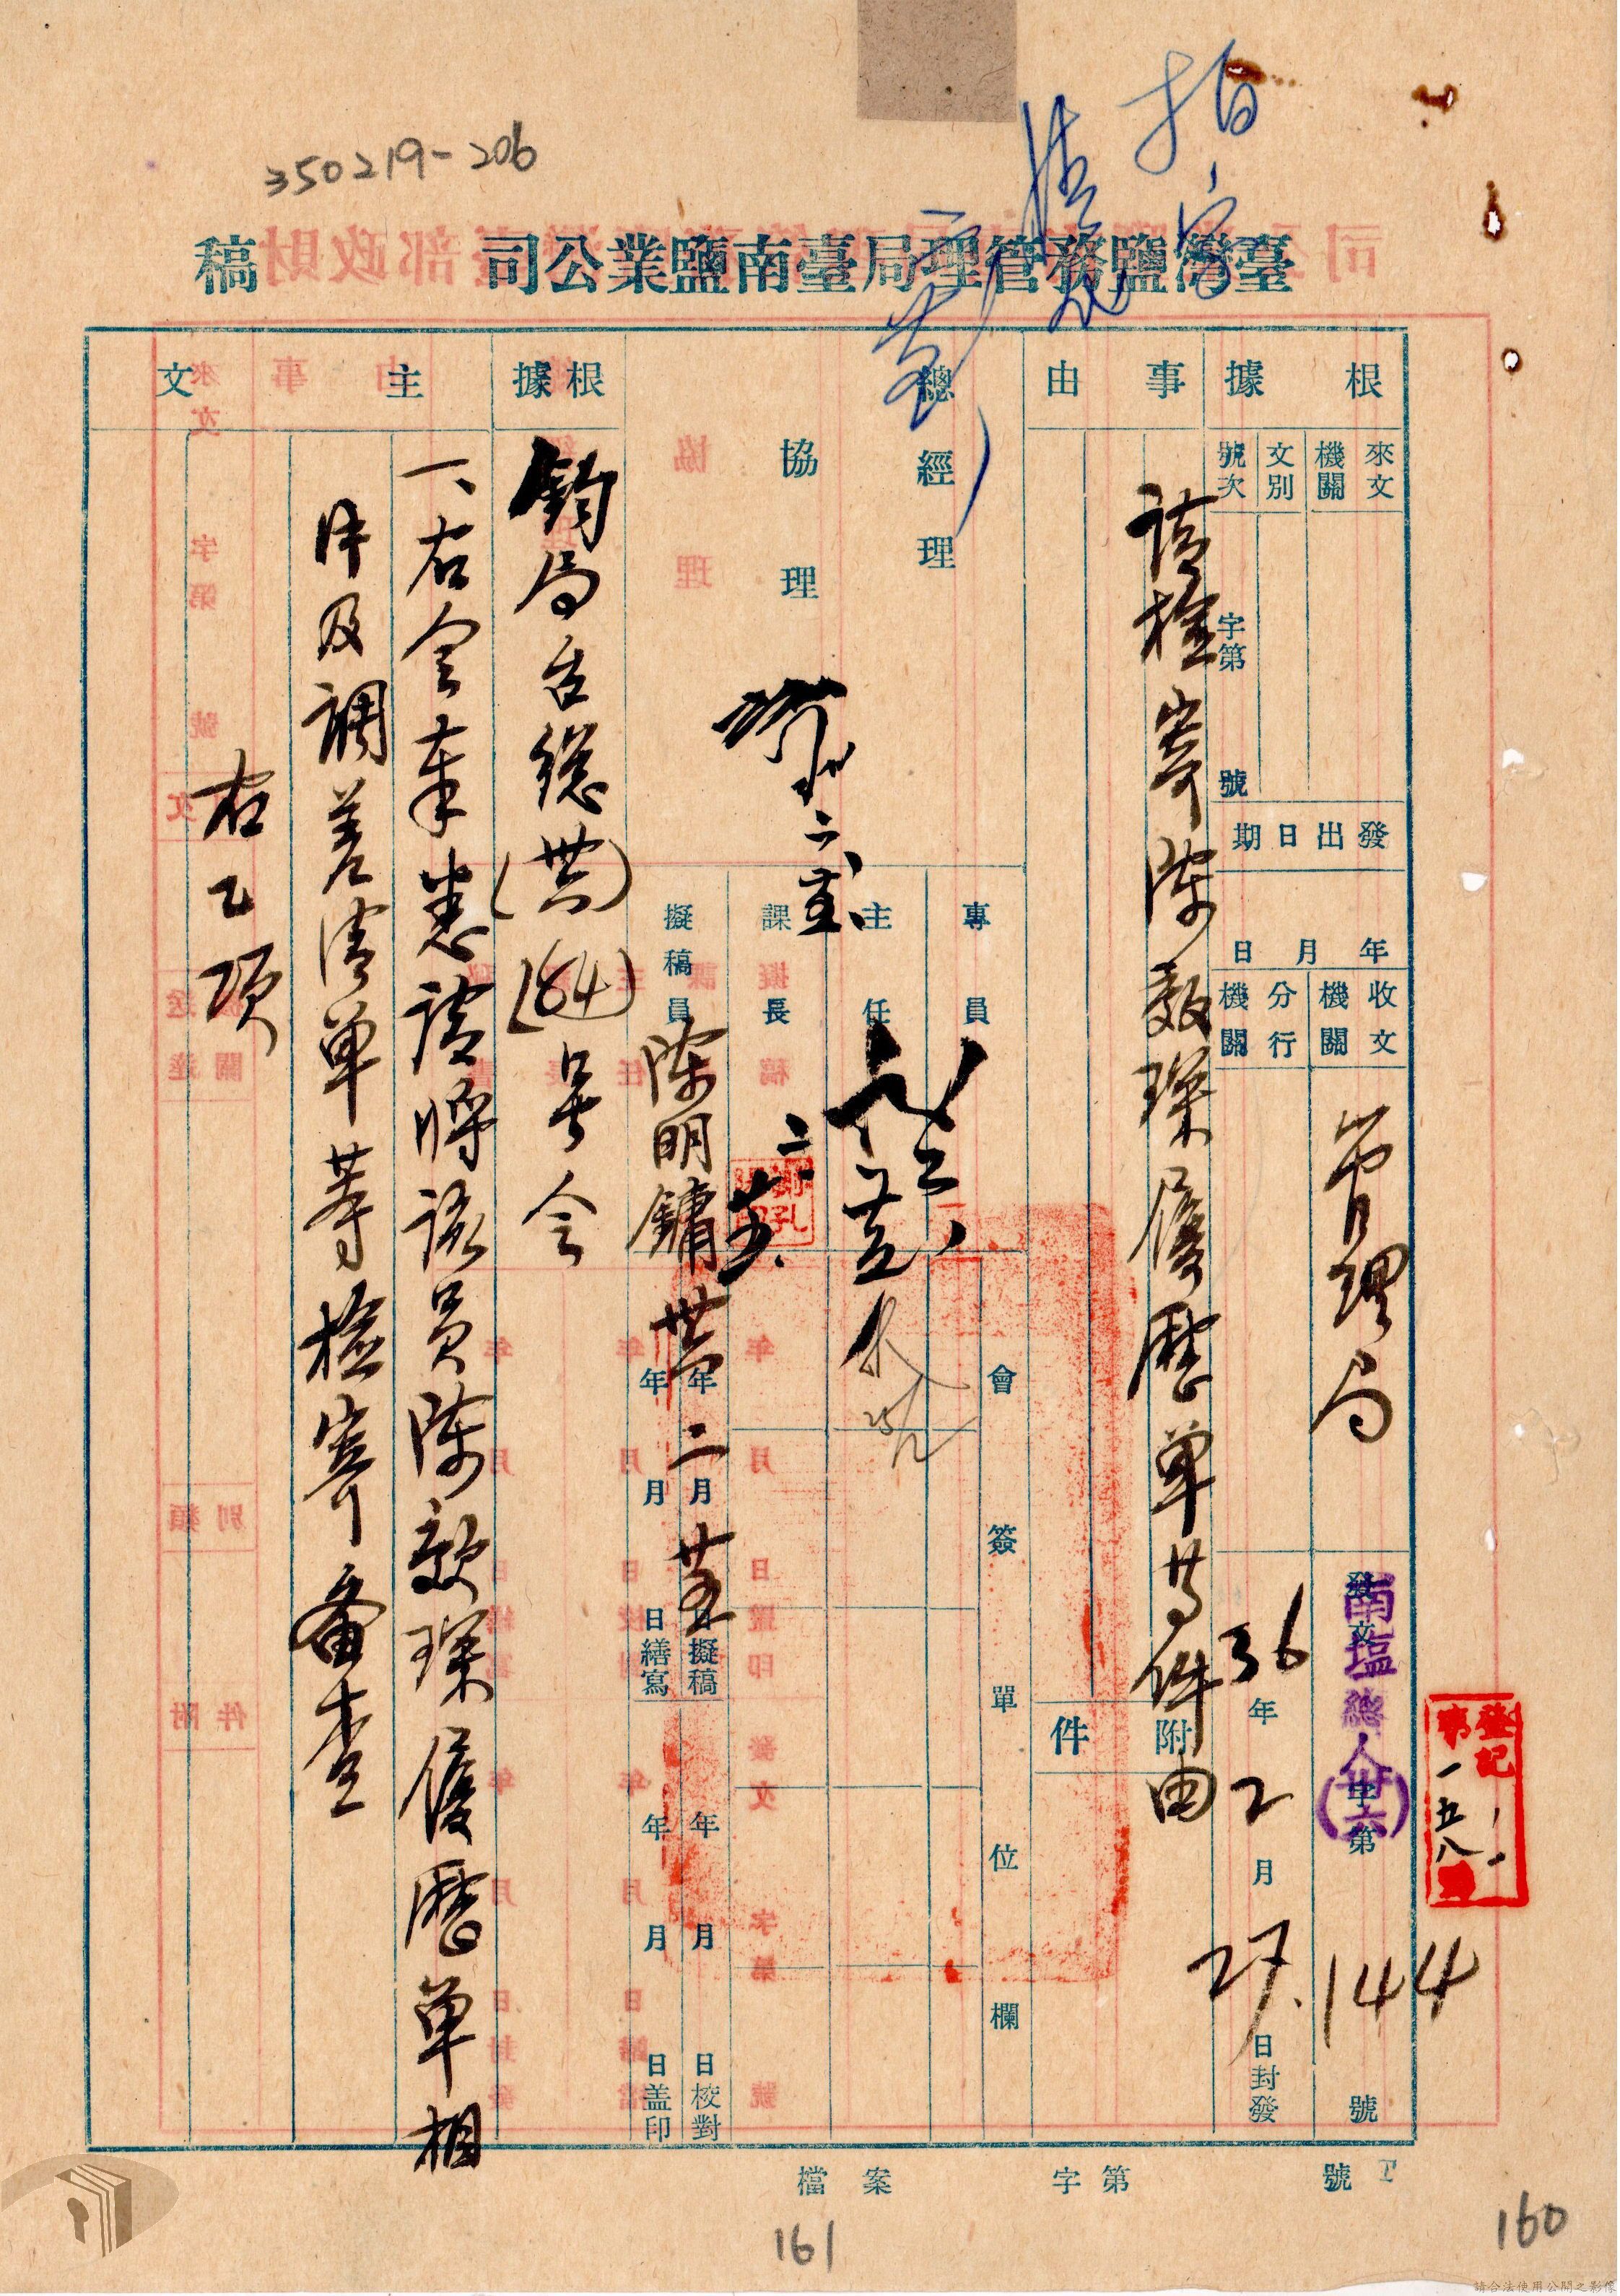 350219-206
臺灣鹽務管理局臺南鹽業公司 稿
根據
來文機關
文別
號次
字第 號
發出日期
年 月 日
收文機關
管理局
分行機關
發文 字第 號
南塩總人(卅六)
144
36年2月27日封發
登記
第一五八號
事由
請檢寄陳 琛履歷單等件由
附件
總經理
協理
專員
主任
課長
擬稿員
陳明鏞
卅六年二月廿五日擬稿
年 月 日繕寫
年 月 日校對
年 月 日盖印
會簽單位欄
根據
鈞局台總(卅六)(84)号令
主文
一、右令奉悉請將該員陳 琛履歷単相
片及調差清単等檢寄备查
右乙項
檔案 字第 號
161
160
請合法使用公開之影像